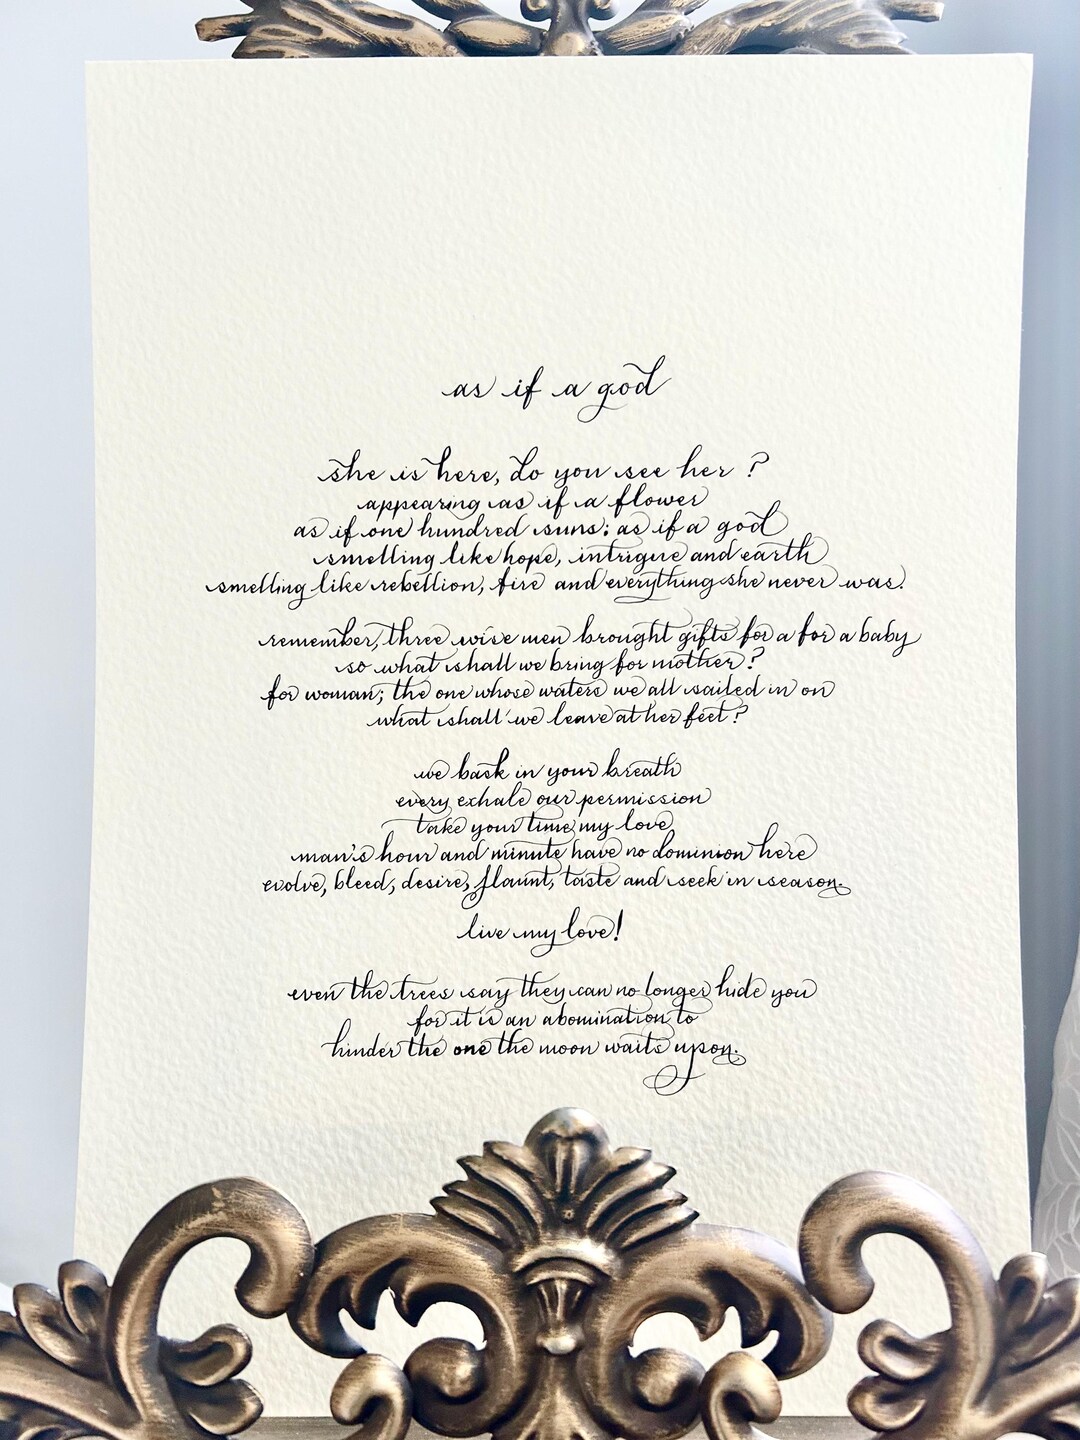 as if a god
she is here, do you see her ?
appearing as if a flower
as if one hundred suns; as if a god
smelling like hope, intrigue and earth
smelling like rebellion, fire and everything she never was.
remember, three wise men brought gifts for a for a baby
so what shall we bring for mother?
for woman; the one whose waters we all sailed in on
what shall we leave at her feet?
we bask in your breath
every exhale our permission
take your time my love
man's hour and minute have no dominion here
evolve, bleed, desire, flaunt, taste and seek in season.
live my love!
even the trees say they can no longer hide you
for it is an abomination to
hinder the one the moon waits upon.